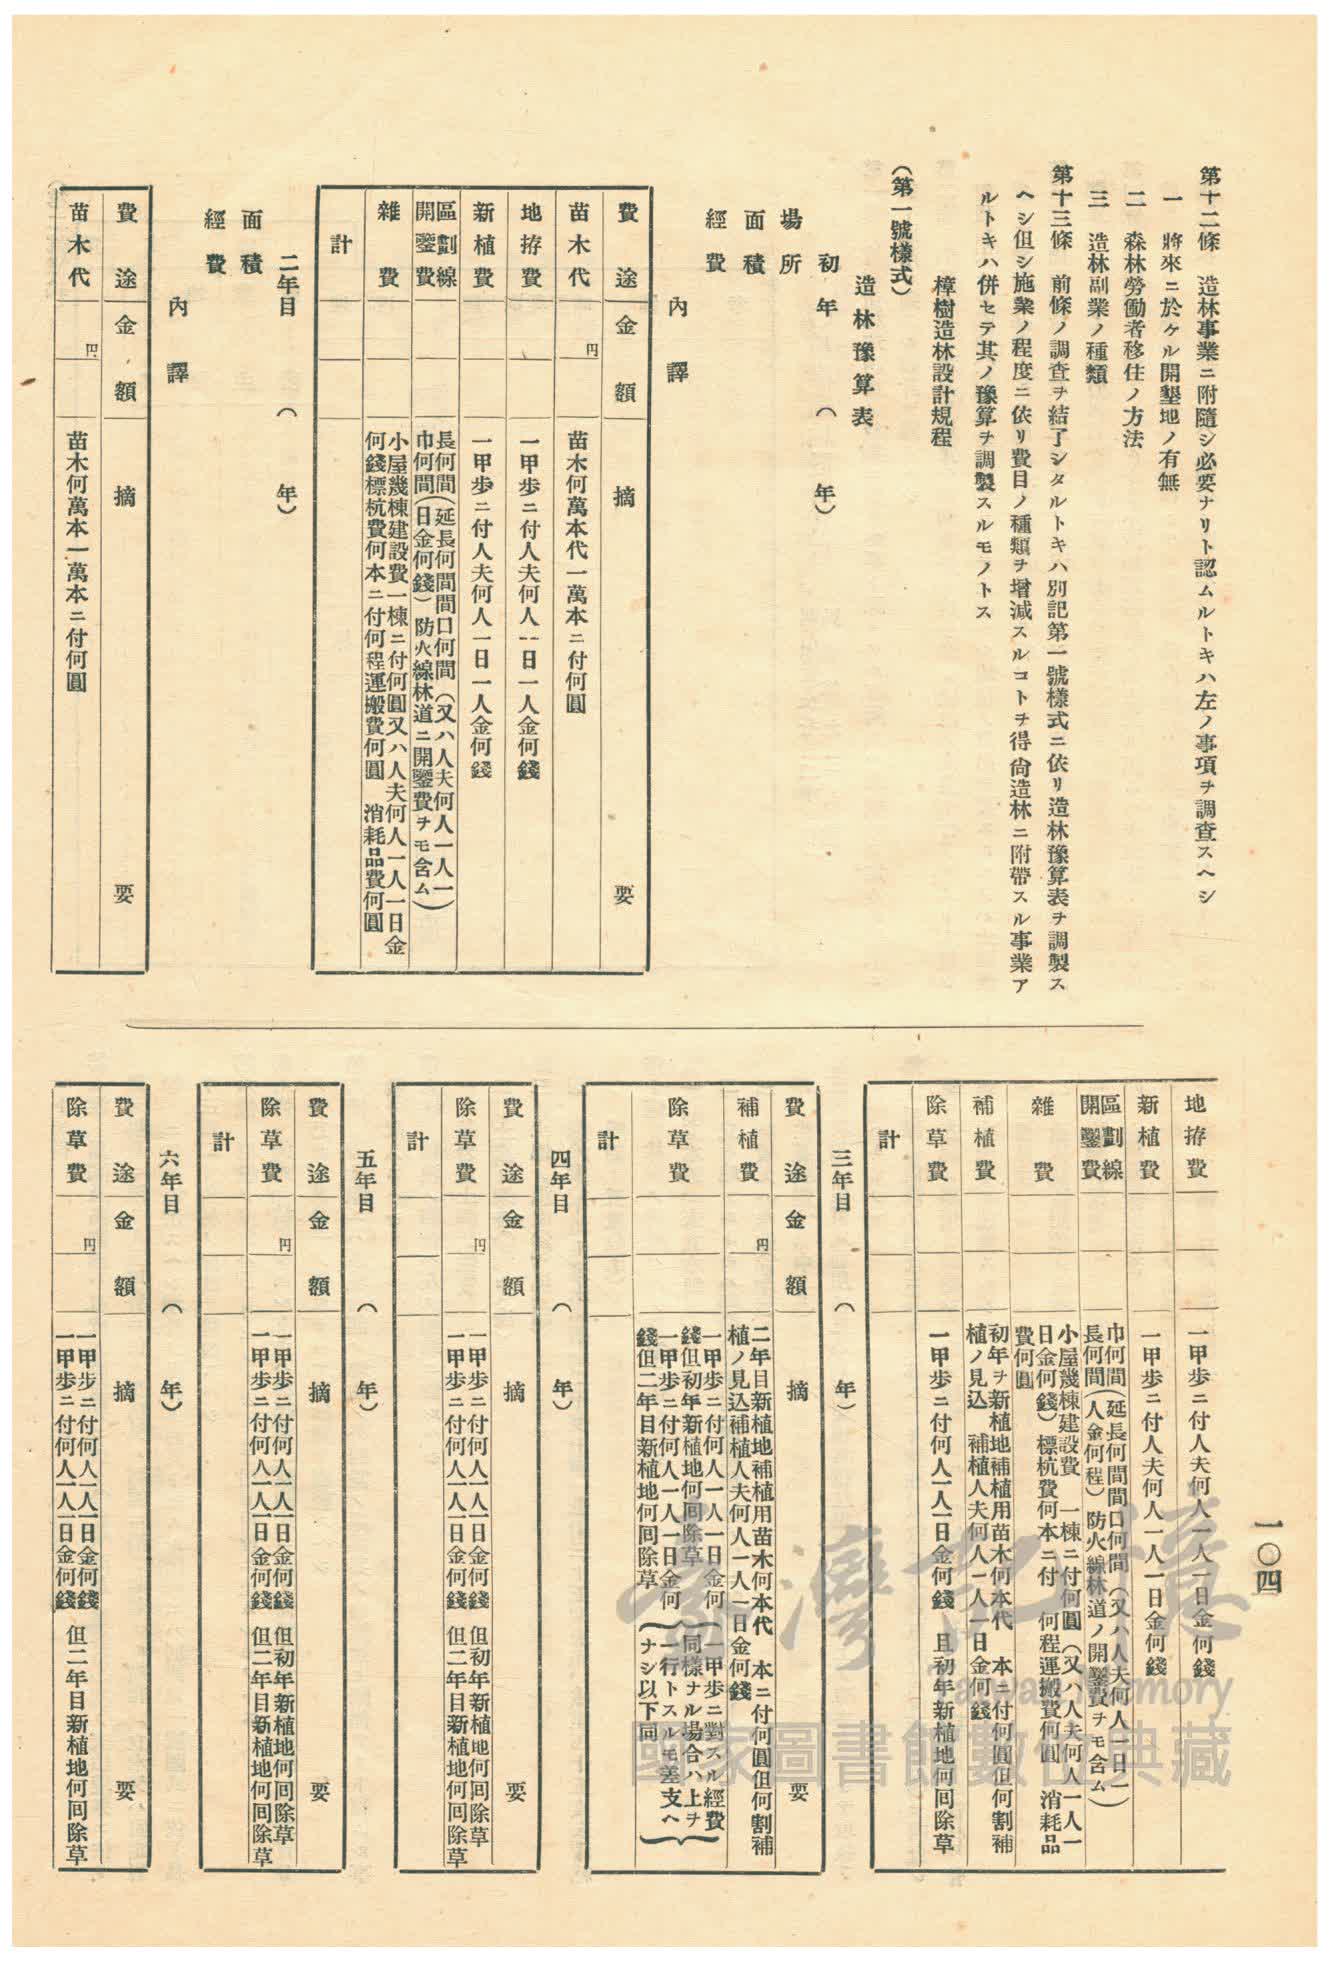 第十二條　造林事業ニ附隨シ必要ナリト認ムルトキハ左ノ事項ヲ調查スヘシ
一　將來ニ於ケル開墾地ノ有無
二　森林勞働者移住ノ方法
三　造林副業ノ種類
第十三條　前條ノ調查ヲ結了シタルトキハ別記第一號樣式ニ依リ造林豫算表ヲ調製ス
ヘシ但シ施業ノ程度ニ依リ費目ノ種類ヲ增減スルコトヲ得尙造林ニ附帶スル事業ア
ルトキハ併セテ其ノ豫算ヲ調製スルモノトス
樟樹造林設計規程
（第一號樣式）
造林豫算表
初年（　年）
場所
面積
經費
內譯
費途　金額　摘要
苗木代　円　苗木何萬本代一萬本ニ付何圓
地拵費　一甲步ニ付人夫何人一日一人金何錢
新植費　一甲步ニ付人夫何人一日一人金何錢
區劃線開鑿費　長何間（延長何間間口何間（又ハ人夫何人一人一
巾何間（日金何錢）防火線林道ニ開鑿費ヲモ含ム）
雜費　小屋幾棟建設費一棟ニ付何圓又ハ人夫何人一人一日金
何錢標杭費何本ニ付何程運搬費何圓　消耗品費何圓
計
二年目（　年）
面積
經費
內譯
費途　金額　摘要
苗木代　円　苗木何萬本一萬本ニ付何圓
地拵費　一甲步ニ付人夫何人一人一日金何錢
新植費　一甲步ニ付人夫何人一人一日金何錢
區劃線開鑿費　巾何間（延長何間間口何間（又ハ人夫何人一日一
長何間（人金何程）防火線林道ノ開鑿費ヲモ含ム）
雜費　小屋幾棟建設費　一棟ニ付何圓（又ハ人夫何人一人一
日金何錢）標杭費何本ニ付　何程運搬費何圓　消耗品
費何圓
補植費　初年ヲ新植地補植用苗木何本代　本ニ付何圓但何割補
植ノ見込　補植人夫何人一人一日金何錢
除草費　一甲步ニ付何人一人一日金何錢　且初年新植地何囘除草
計
三年目（　年）
費途　金額　摘要
補植費　円　二年目新植地補植用苗木何本代　本ニ付何圓但何割補
植ノ見込補植人夫何人一人一日金何錢
除草費　一甲步ニ付何人一人一日金何
錢但初年新植地何囘除草
一甲步ニ付何人一人一日金何
錢但二年目新植地何囘除草
（一甲步ニ對スル經費
同樣ナル場合ハ上ヲ
一行トスルモ差支ヘ
ナシ以下同）
計
四年目（　年）
費途　金額　摘要
除草費　円　一甲步ニ付何人一人一日金何錢　但初年新植地何囘除草
一甲步ニ付何人一人一日金何錢　但二年目新植地何囘除草
計
五年目（　年）
費途　金額　摘要
除草費　円　一甲步ニ付何人一人一日金何錢　但初年新植地何囘除草
一甲步ニ付何人一人一日金何錢　但二年目新植地何囘除草
計
六年目（　年）
費途　金額　摘要
除草費　円　一甲步ニ付何人一人一日金何錢
一甲步ニ付何人一人一日金何錢　但二年目新植地何囘除草
一〇四
臺灣記憶
Taiwan Memory
國家圖書館數位典藏